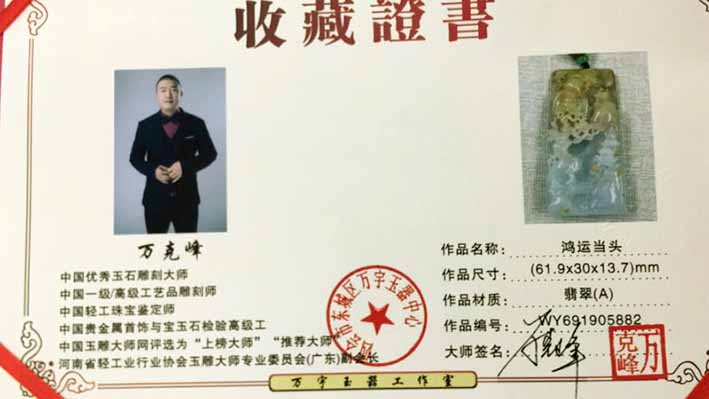 收藏證書
万克峰
中国优秀玉石雕刻大师
中国一级/高级工艺品雕刻师
中国轻工珠宝鉴定师
中国贵金属首饰与宝玉石检验高级工
中国玉雕大师网评选为“上榜大师”“推荐大师”
河南省轻工业行业协会玉雕大师专业委员会(广东)副会长
会市东城区万宇玉器中心
作品名称: 鸿运当头
作品尺寸: (61.9x30x13.7)mm
作品材质: 翡翠(A)
作品编号: WY691905882
大师签名:
万克峰
万宇玉器工作室